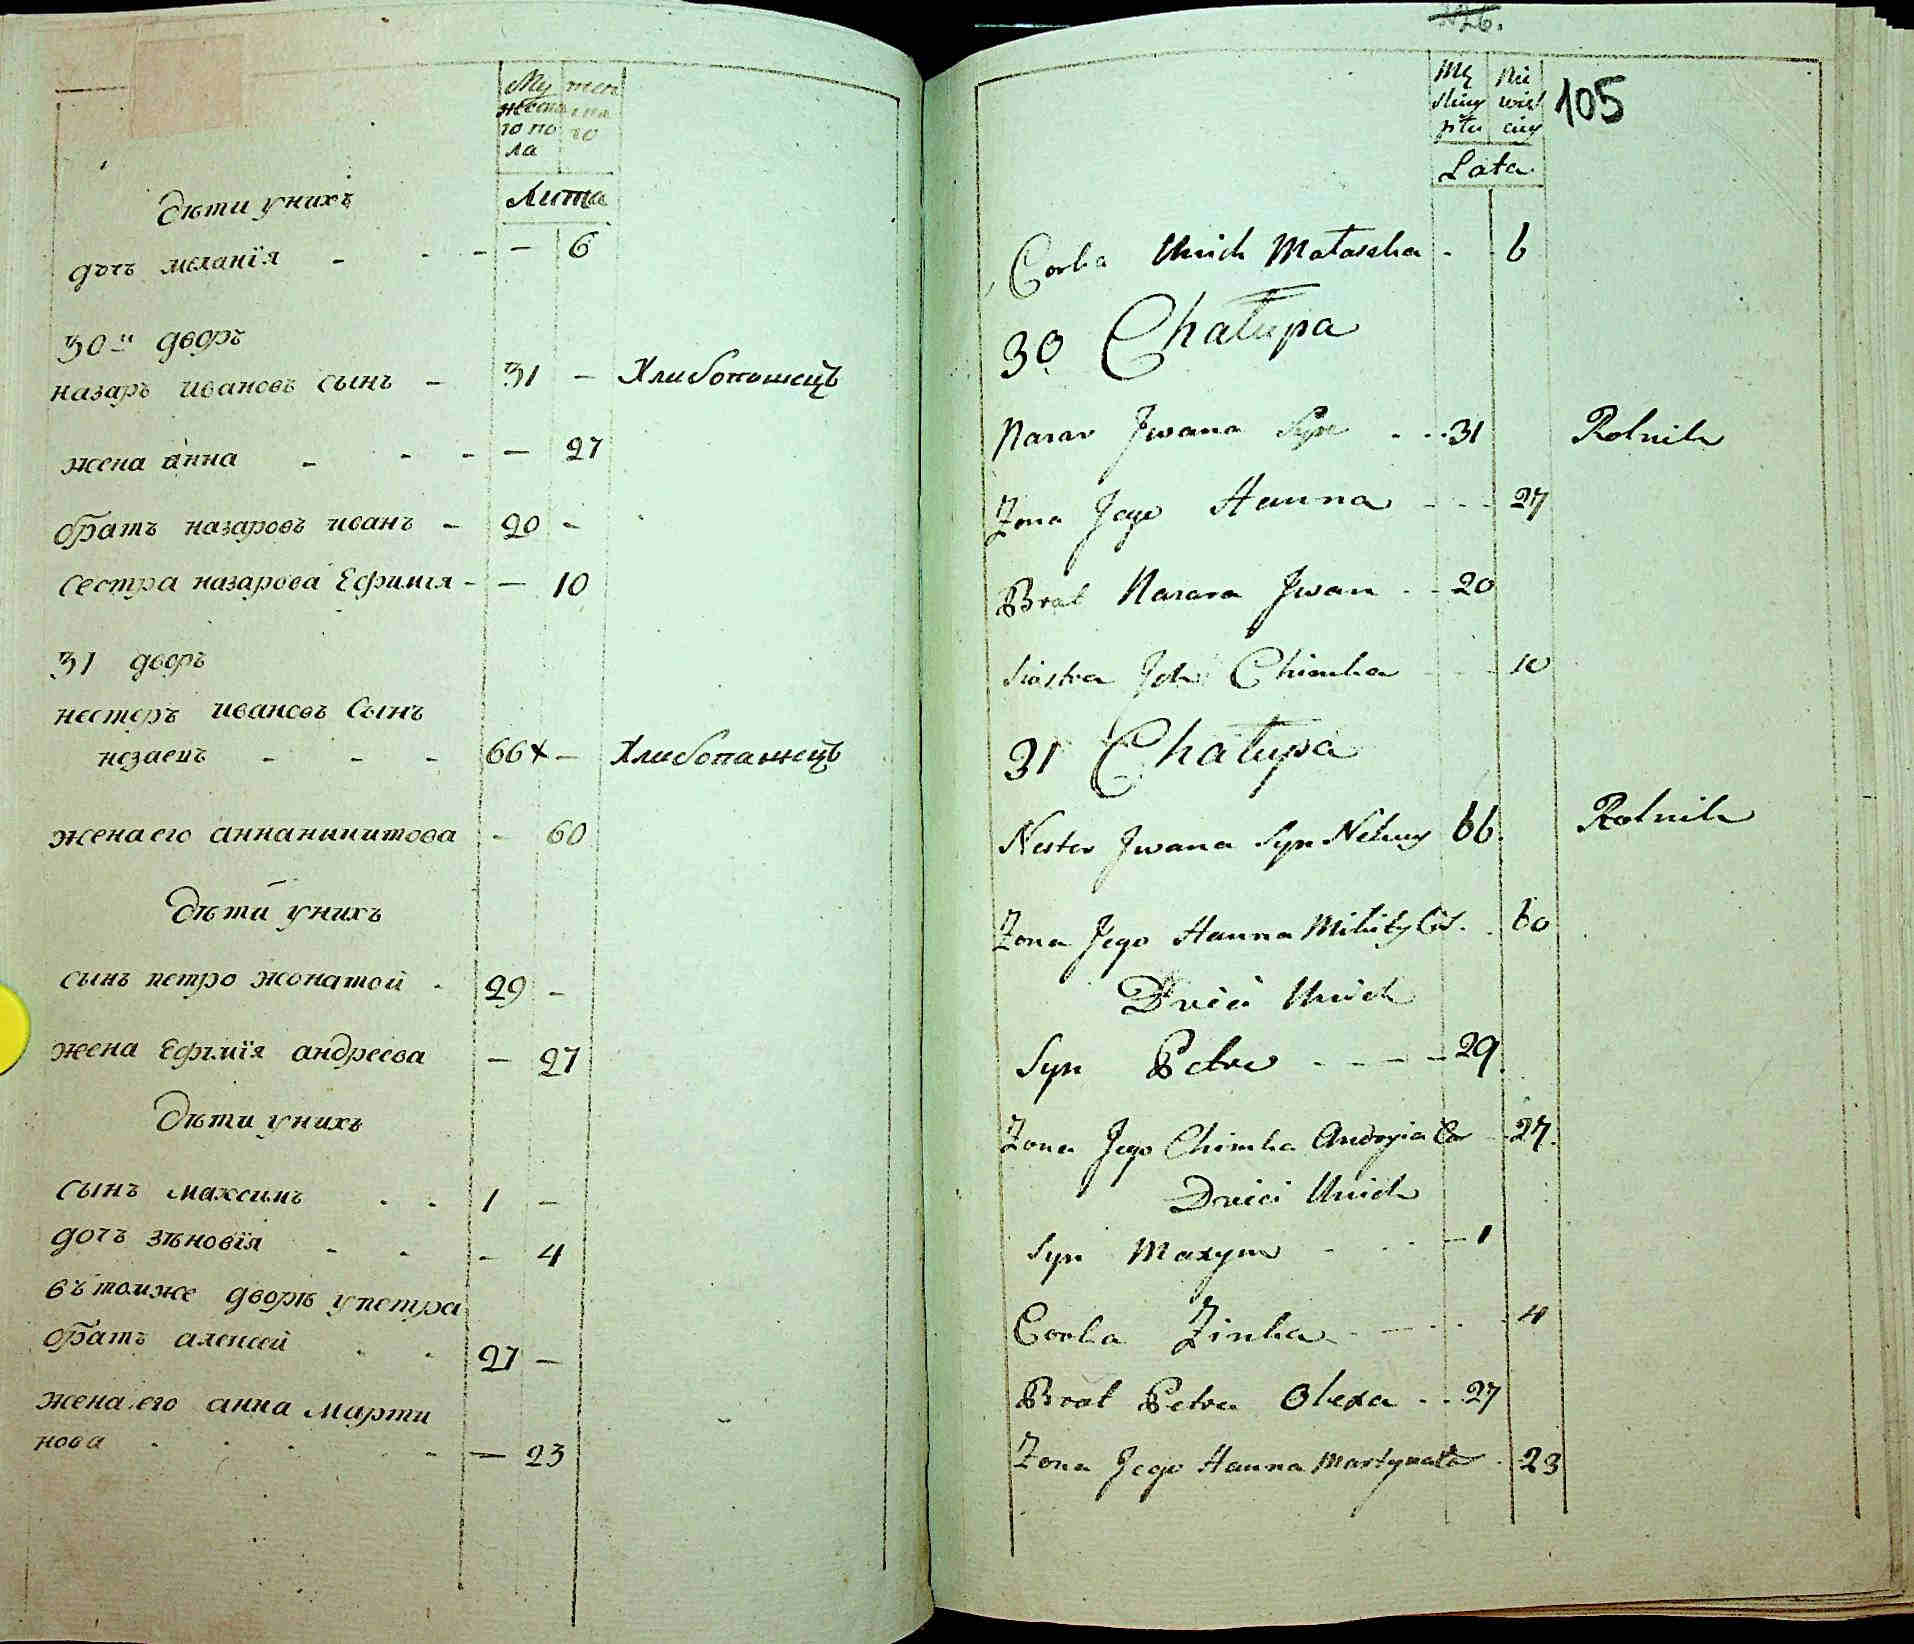 Му жен
жеска ска
го по го
ла
Лита
дѣти унихъ
дочъ меланїя - - - - 6
30й дворъ
назаръ ивановъ сынъ - 31 - Хлибопашецъ
жена анна - - - - 27
братъ назаровъ иванъ - 20 -
сестра назарова Ефимия - - 10
31 дворъ
нестеръ ивановъ сынъ
незаецъ - - - 66 х - Хлибопашецъ
жена его анна никитова - 60
дѣти унихъ
сынъ петро жонатой - 29 -
жена Ефимїя андреева - 27
дѣти унихъ
сынъ максимъ - - 1 -
дочъ зѣновїя - - - 4
въ томже дворѣ у петра
братъ алексей - - 27 -
жена его анна марти
нова - - - - - 23
126.
105
Lata
Corka Unich Mataszka - - 6
30 Chałupa
Nazar Jwana Syn - - 31 Rolnik
Zona Jego Hanna - - - 27
Brat Nazara Jwan - - 20
Siostra Ich Chimka - - - 10
31 Chałupa
Nester Jwana Syn 66. Rolnik
Zona Jego Hanna Mikity Cor. - 60
Dzieci Unich
Syn Petro - - - - 29.
Zona Jego Chimka Andryia Co - 27.
Dzieci Unich
Syn Maxym - - - 1
Corka Zinka - - - - 4
Brat Petra Olexa - - 27
Zona Jego Hanna Martyna Co - 23